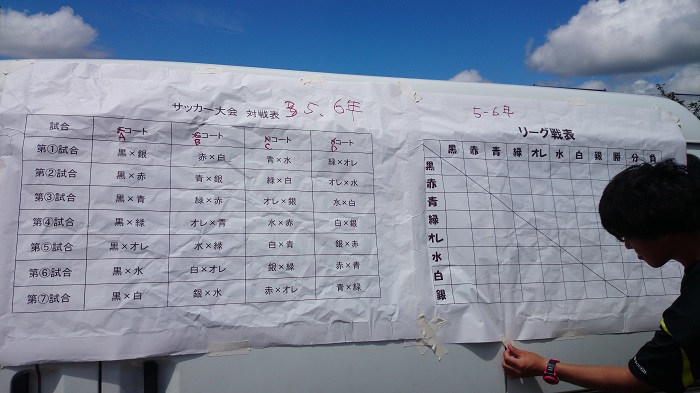 サッカー大会 対戦表 5、6年
試合 Aコート Bコート Cコート Dコート
第①試合 黒×銀 赤×白 青×水 緑×オレ
第②試合 黒×赤 青×銀 緑×白 オレ×水
第③試合 黒×青 緑×赤 オレ×銀 水×白
第④試合 黒×緑 オレ×青 水×赤 白×銀
第⑤試合 黒×オレ 水×緑 白×青 銀×赤
第⑥試合 黒×水 白×オレ 銀×緑 赤×青
第⑦試合 黒×白 銀×水 赤×オレ 青×緑
5-6年
リーグ戦表
黒 赤 青 緑 オレ 水 白 銀 勝 分 負
黒
赤
青
緑
オレ
水
白
銀